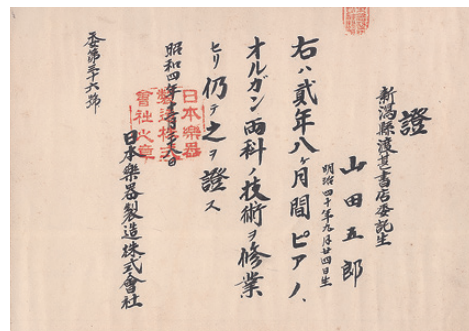 證
新潟縣渡邊書店委託生
山田五郎
明治四十年九月廿四日生
右ハ貳年八ヶ月間ピアノ、
オルガン兩科ノ技術ヲ修業
セリ仍テ之ヲ證ス
昭和四年
日本樂器製造株式會社
日本樂器
製造株式
會社之章